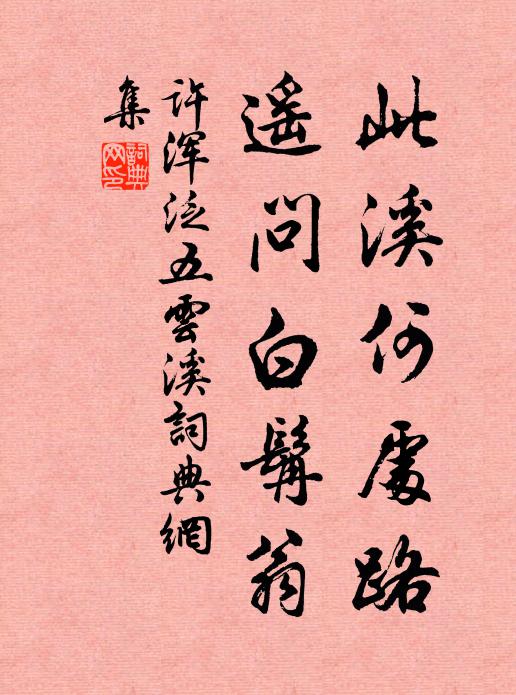 此溪何處路
遥問白髯翁
許渾泛五雲溪詞典網
集
詞典網印